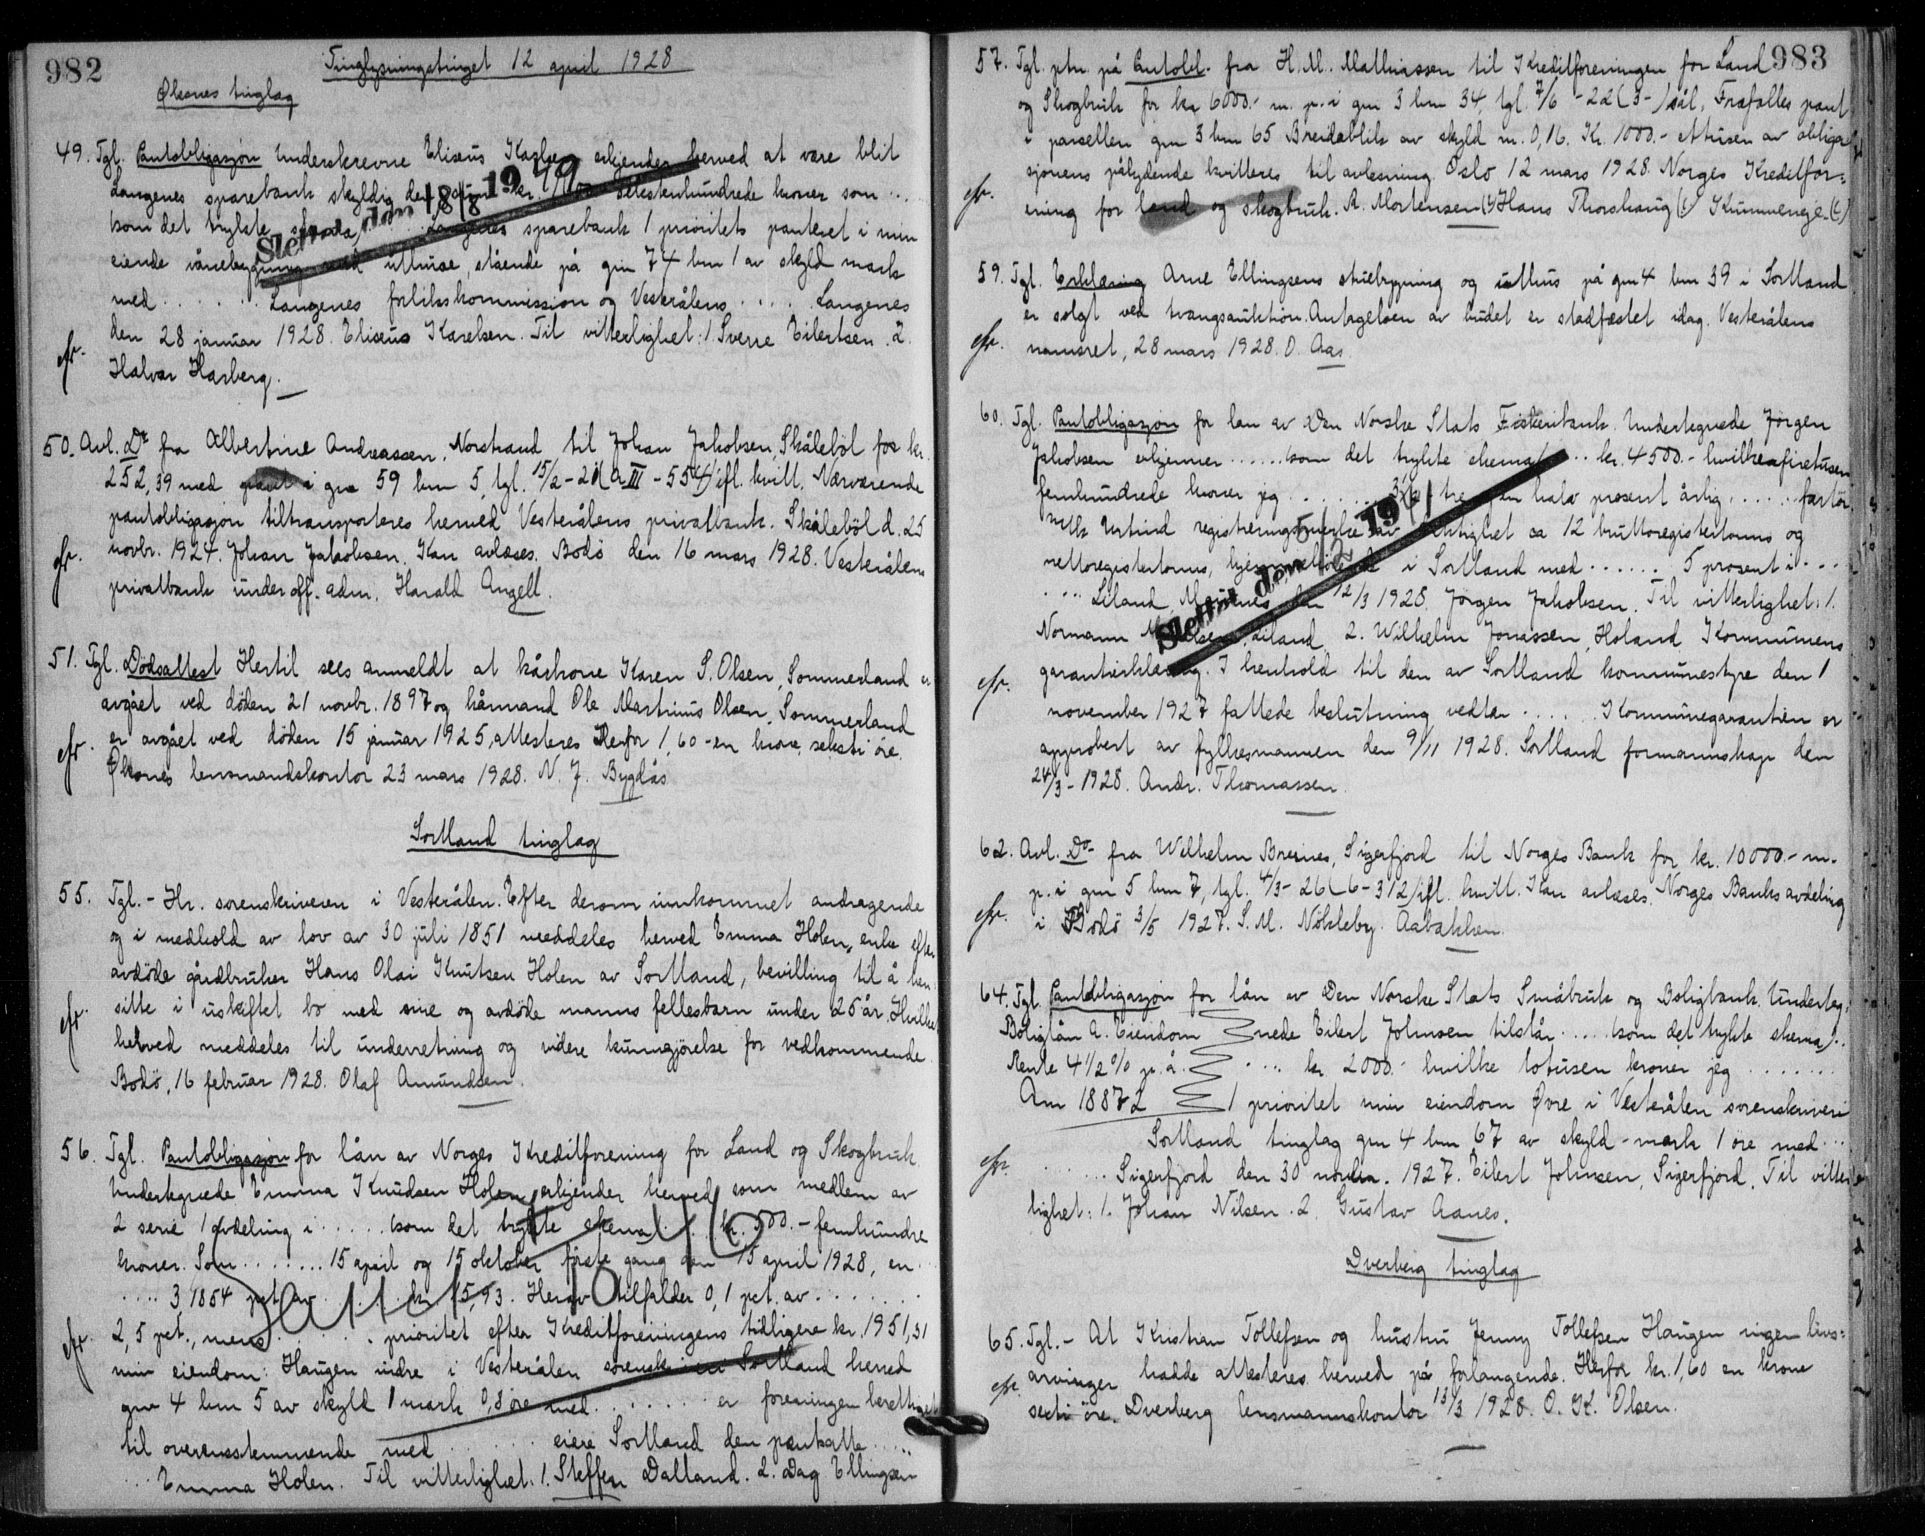 982
Tinglysningstinget 12 april 1928
Øksnes tinglag
49. Tgl. Pantobligasjon Underskrevne Eliseus erkjender herved at være blit
Langenes sparebank skyldig den hundrede kroner som ...
(som det trykte skema) Langenes sparebank 1 prioritets panteret i min
eiende våningbygning med uthuse, stående på gnr 74 bnr 1 av skyld mark
med ...... Langenes forlikskommission og Vesterålens ..... Langenes
den 28 januar 1928. Eliseus Karelsen. Til vitterlighet: 1. Sverre Eilertsen. 2.
cfr. Halvar Harberg.
Slettet den 18/8 1949
50. Avl. Do fra Albertine Andreassen, Norstrand til Johan Jakobsen, Skåleböl for kr.
252,39 med pant i gnr 59 bnr 5, tgl. 15/2-21 (a III - 554) ifl. kvitt. Nærværende
pantobligasjon tiltransporteres herved Vesterålens privatbank. Skåleböl d. 25
cfr. novbr. 1924. Johan Jakobsen. Kan avlæses. Bodö den 16 mars 1928. Vesterålens
privatbank under off. adm. Harald Angell.
51. Tgl. Dödsattest Hertil sees anmeldt at kårkone Karen S. Olsen, Sommerland er
avgået ved döden 21 novbr. 1897 og kårmand Ole Martinus Olsen, Sommerland
cfr. er avgået ved döden 15 januar 1925, attesteres Herfor 1,60 - en krone seksti öre.
Öksnes lensmandskontor 23 mars 1928. N. J. Bygdås
Sortland tinglag
55. Tgl. - Hr. sorenskriveren i Vesterålen. Efter derom innkommet andragende
og i medhold av lov av 30 juli 1851 meddeles herved Emma Holen, enke efter
avdöde gårdbruker Hans Olai Knutsen Holen av Sortland, bevilling til å hen
cfr. sitte i uskiftet bo med sine og avdöde manns fellesbarn under 25 år. Hvilket
herved meddeles til underretning og videre kunngjörelse for vedkommende.
Bodö, 16 februar 1928. Olaf Amundsen.
56. Tgl. Pantobligasjon for lån av Norges Kreditforening for Land og Skogbruk
Undertegnede Emma Knudsen Holen erkjender herved som medlem av
2 serie 1 avdeling i ...... (som det trykte skema) ... kr. 500.- femhundre
kroner. Som ........ 15 april og 15 oktober förste gang den 15 april 1928, en
.... 3,1854 pct av ..... kr. 15,93. Herav tilfalder 0,1 pct. av ........
cfr. 2,5 pct., mens ........ prioritet efter Kreditforeningens tidligere kr. 1951,31
min eiendom: Haugen indre i Vesterålen sorenskriveri Sortland herred
gnr 4 bnr 5 av skyld 1 mark 0,8 öre med ........ er foreningen berettiget
til overensstemmende med ...... eiere Sortland den pantsatte .....
... Emma Holen. Til vitterlighet. 1. Steffen Dalland. 2. Dag Ellingsen
983
57. Tgl. ptn. på Pantobl. fra H. M. Mathiassen til Kreditforeningen for Land
og Skogbruk for kr. 6000.- m. p. i gnr 3 bnr 34 tgl. 7/6-22 (3-) sål. Frafalles pant
i parsellen gnr 3 bnr 65 Breidablik av skyld m. 0,16. Kr. 1000.- ettusen av obliga
sjonens pålydende kvitteres til avlesning. Oslo 12 mars 1928. Norges Kreditfor=
cfr. ening for land og skogbruk. R. Mortensen (s) Hans Thorshaug (s)
59. Tgl. Erklæring Arne Ellingsens stuebygning og uthus på gnr 4 bnr 39 i Sortland
er solgt ved tvangsauktion. Antagelsen av budet er stadfæstet idag. Vesterålens
cfr. namsret, 28 mars 1928. O. Aas.
60. Tgl. Pantobligasjon for lån av Den Norske Stats Fiskeribank. Undertegnede Jörgen
Jakobsen erkjenner ...... (som det trykte skema) ... kr. 4500.- hvilke firetusen
femhundrede kroner jeg ........ 3½ tre og en halv prosent årlig ...... fartöi
registreringsmerke av drektighet ca 12 bruttoregistertonns og
nettoregistertonns, hjemmehörende i Sortland med ...... 5 prosent i ...
.... Liland, den 12/3 1928. Jörgen Jakobsen. Til vitterlighet: 1.
Normann Liland 2. Wilhelm Jonassen, Holand Kommunens
cfr. garantierklæring. I henhold til den av Sortland kommunestyre den 1
november 1927 fattede beslutning vedtar ..... Kommunegarantien er
approbert av fylkesmannen den 9/11 1928. Sortland formannskap den
24/3-1928. Andr. Thomassen.
Slettet den 1941
62. Avl. Do fra Wilhelm Breines, Sigerfjord til Norges Bank for kr. 10000.- m.
p. i gnr 5 bnr 7, tgl. 4/3-26 (6-312) ifl. kvitt. Kan avlæses. Norges Banks avdeling
cfr. i Bodö 3/5 1927. S. M. Nökleby. Aabakken.
64. Tgl. Pantobligasjon for lån av Den Norske Stats Småbruk og Boligbank. Underteg=
Boliglån A. Eiendom nede Eilert Johnsen tilstår ..... (som det trykte skema) ..
Rente 4 1/2 % p. å. .... kr. 2000.- hvilke totusen kroner jeg .......
Am 18872 1 prioritet min eiendom Øvre i Vesterålen sorenskriveri
Sortland tinglag gnr 4 bnr 67 av skyld - mark 1 öre med ...
cfr. .... Sigerfjord den 30 novbr. 1927. Eilert Johnsen, Sigerfjord. Til vitter
lighet: 1. Johan Nilsen. 2. Gustav Aanes.
Dverberg tinglag
65. Tgl. - At Kristian Tollefsen og hustru Jenny Tollefsen Haugen ingen livs=
cfr. arvinger hadde attesteres herved på forlangende. Herfor kr. 1,60 en krone
seksti öre. Dverberg lensmannskontor 13/3 1928. O. K. Olsen.